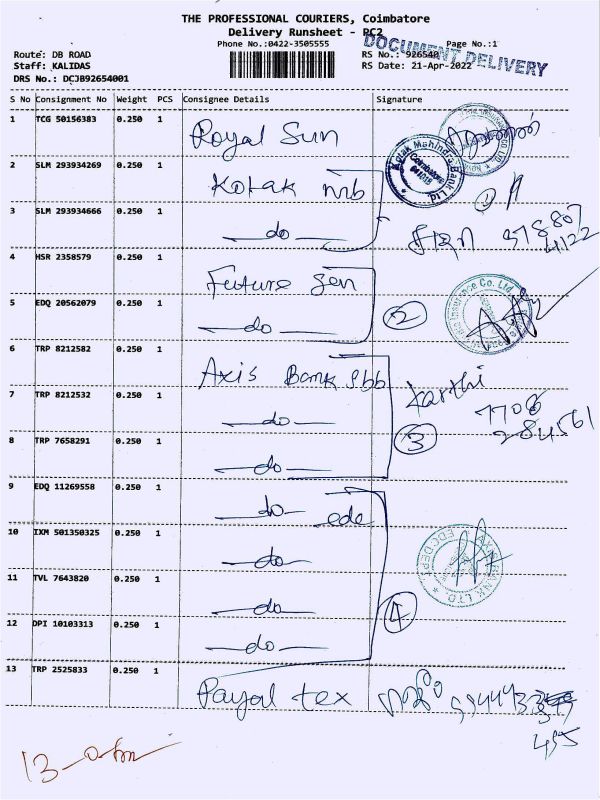 THE PROFESSIONAL COURIERS, Coimbatore
Delivery Runsheet - PC2
Phone No.:0422-3505555
Page No.:1
DOCUMENT DELIVERY
Route: DB ROAD
RS No.: 926540
Staff: KALIDAS
RS Date: 21-Apr-2022
DRS No.: DCJB92654001
S No Consignment No Weight PCS Consignee Details Signature
1 TCG 50156383 0.250 1 Royal Sun
2 SLM 293934269 0.250 1 Kotak nrb
Kotak Mahindra Bank Ltd. Coimbatore 641018
3 SLM 293934666 0.250 1 do
4 HSR 2358579 0.250 1 Future Gen
5 EDQ 20562079 0.250 1 do 2
Insurance Co. Ltd.
6 TRP 8212582 0.250 1 Axis Bank sbb
Karthi
7 TRP 8212532 0.250 1 do 7708
284561
8 TRP 7658291 0.250 1 do 3
9 EDQ 11269558 0.250 1 do ede
10 IXM 501350325 0.250 1 do
11 TVL 7643820 0.250 1 do
12 DPI 10103313 0.250 1 do 4
13 TRP 2525833 0.250 1 Payal tex